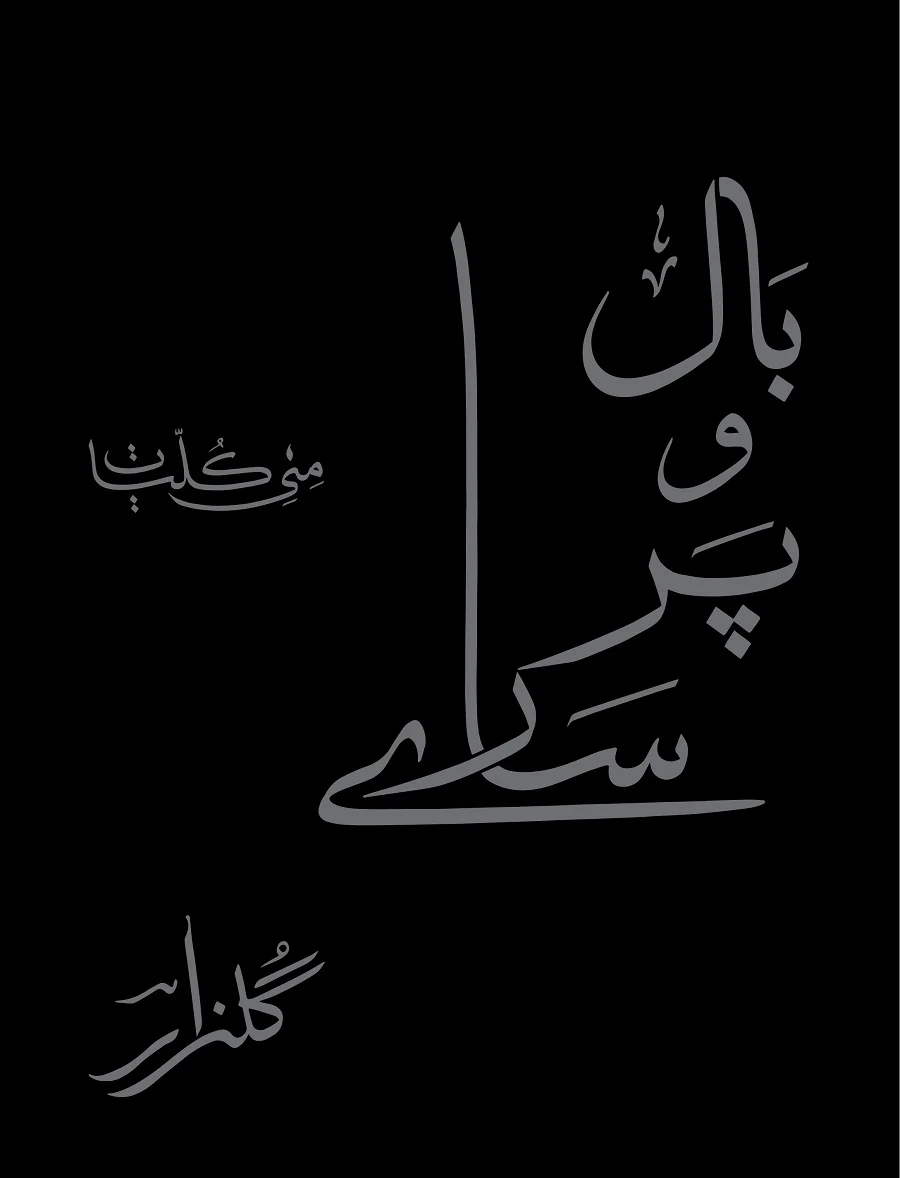 بَال
و
پَر
سَارے
مِنِی کُلّیات
گُلزار